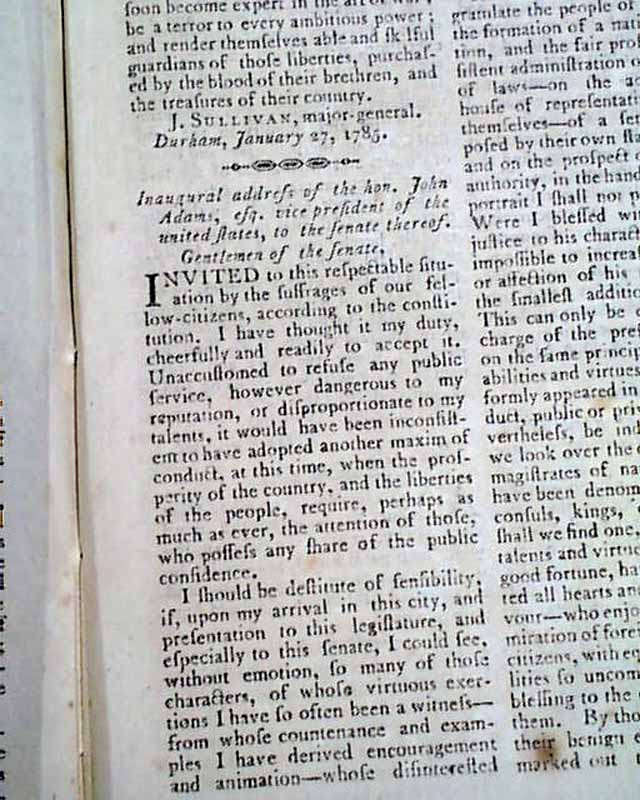 soon become expert in the art of war,
be a terror to every ambitious power;
and render themselves able and ſkilful
guardians of thoſe liberties, purchaſ-
ed by the blood of their brethren, and
the treaſures of their country.
J. SULLIVAN, major-general.
Durham, January 27, 1785.
Inaugural addreſs of the hon. John
Adams, eſq. vice preſident of the
united ſtates, to the ſenate thereof.
Gentlemen of the ſenate,
INVITED to this reſpectable ſitu-
ation by the ſuffrages of our fel-
low-citizens, according to the conſti-
tution. I have thought it my duty,
cheerfully and readily to accept it.
Unaccuſtomed to refuſe any public
ſervice, however dangerous to my
reputation, or diſproportionate to my
talents, it would have been inconſiſt-
ent to have adopted another maxim of
conduct, at this time, when the proſ-
perity of the country, and the liberties
of the people, require, perhaps as
much as ever, the attention of thoſe,
who poſſeſs any ſhare of the public
confidence.
I ſhould be deſtitute of ſenſibility,
if, upon my arrival in this city, and
preſentation to this legiſlature, and
eſpecially to this ſenate, I could ſee,
without emotion, ſo many of thoſe
characters, of whoſe virtuous exer-
tions I have ſo often been a witneſs—
from whoſe countenance and exam-
ples I have derived encouragement
and animation—whoſe diſintereſted
gratulate the people of
the formation of a nati
tion, and the fair proſ
ſiſtent adminiſtration o
of laws—on the ac
houſe of repreſentati
themſelves—of a ſen
poſed by their own ſta
and on the proſpect o
authority, in the hand
portrait I ſhall not p
Were I bleſſed wi
juſtice to his charact
impoſſible to increaſ
or affection of his
the ſmalleſt additio
This can only be
charge of the preſ
on the ſame princip
abilities and virtues
formly appeared in
duct, public or pri
vertheleſs, be ind
we look over the
magiſtrates of na
have been denom
conſuls, kings,
ſhall we find one,
talents and virtue
good fortune, ha
ted all hearts an
vour—who enjo
miration of forei
citizens, with eq
lities ſo uncom
bleſſing to the
them. By tho
their benign e
marked out